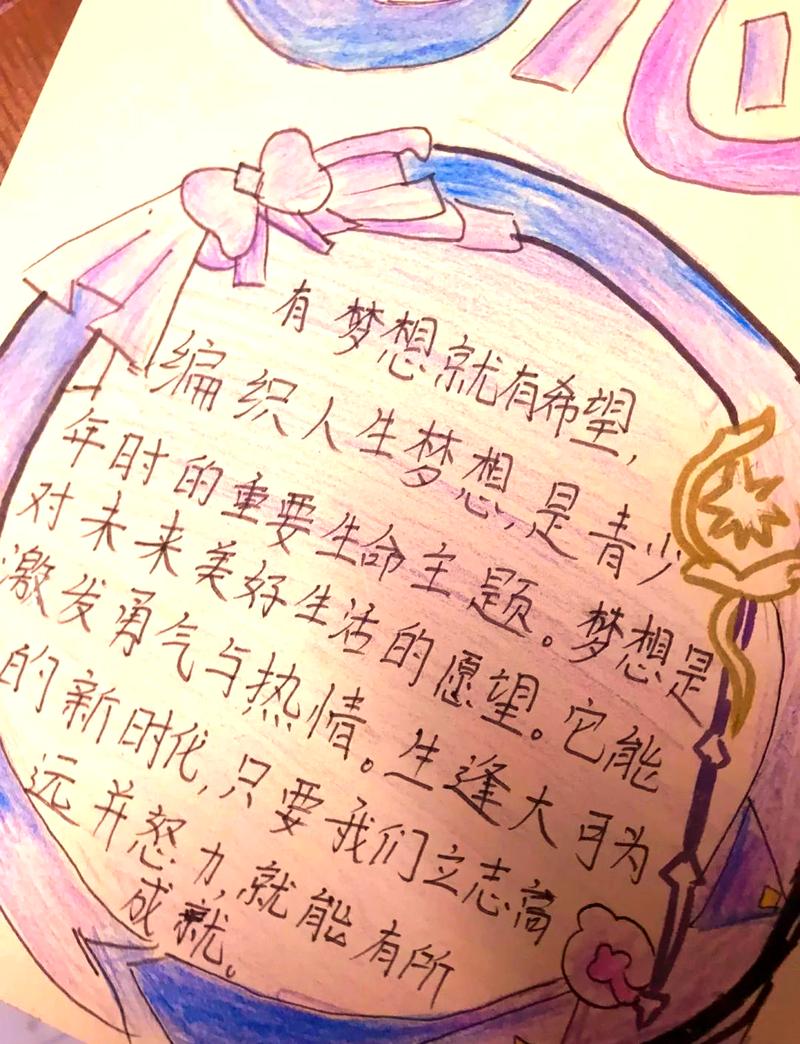 有梦想就有希望,
编织人生梦想,是青少
年时的重要生命主题。梦想是
对未来美好生活的愿望。它能
激发勇气与热情。生逢大可为
的新时代,只要我们立志高
远并怒力,就能有所
成就。